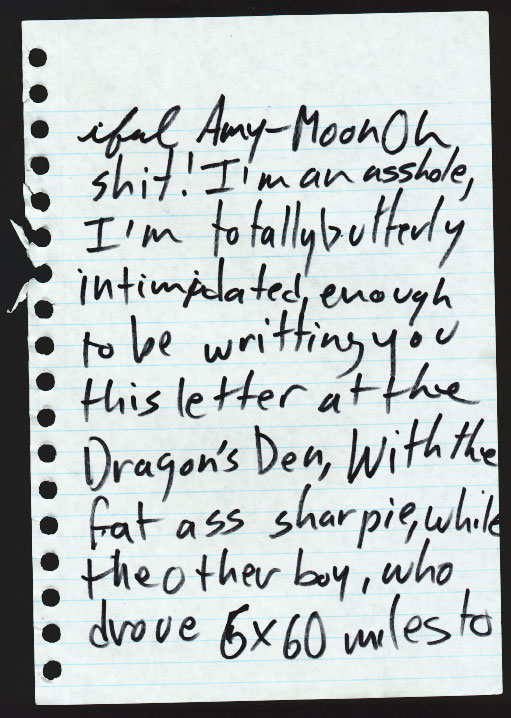 iful Amy-Moon Oh
shit! I'm an asshole,
I'm totallybutterly
intimidated, enough
to be writting you
this letter at the
Dragon's Den, With the
fat ass sharpie, while
the other boy, who
drove 5x60 miles to